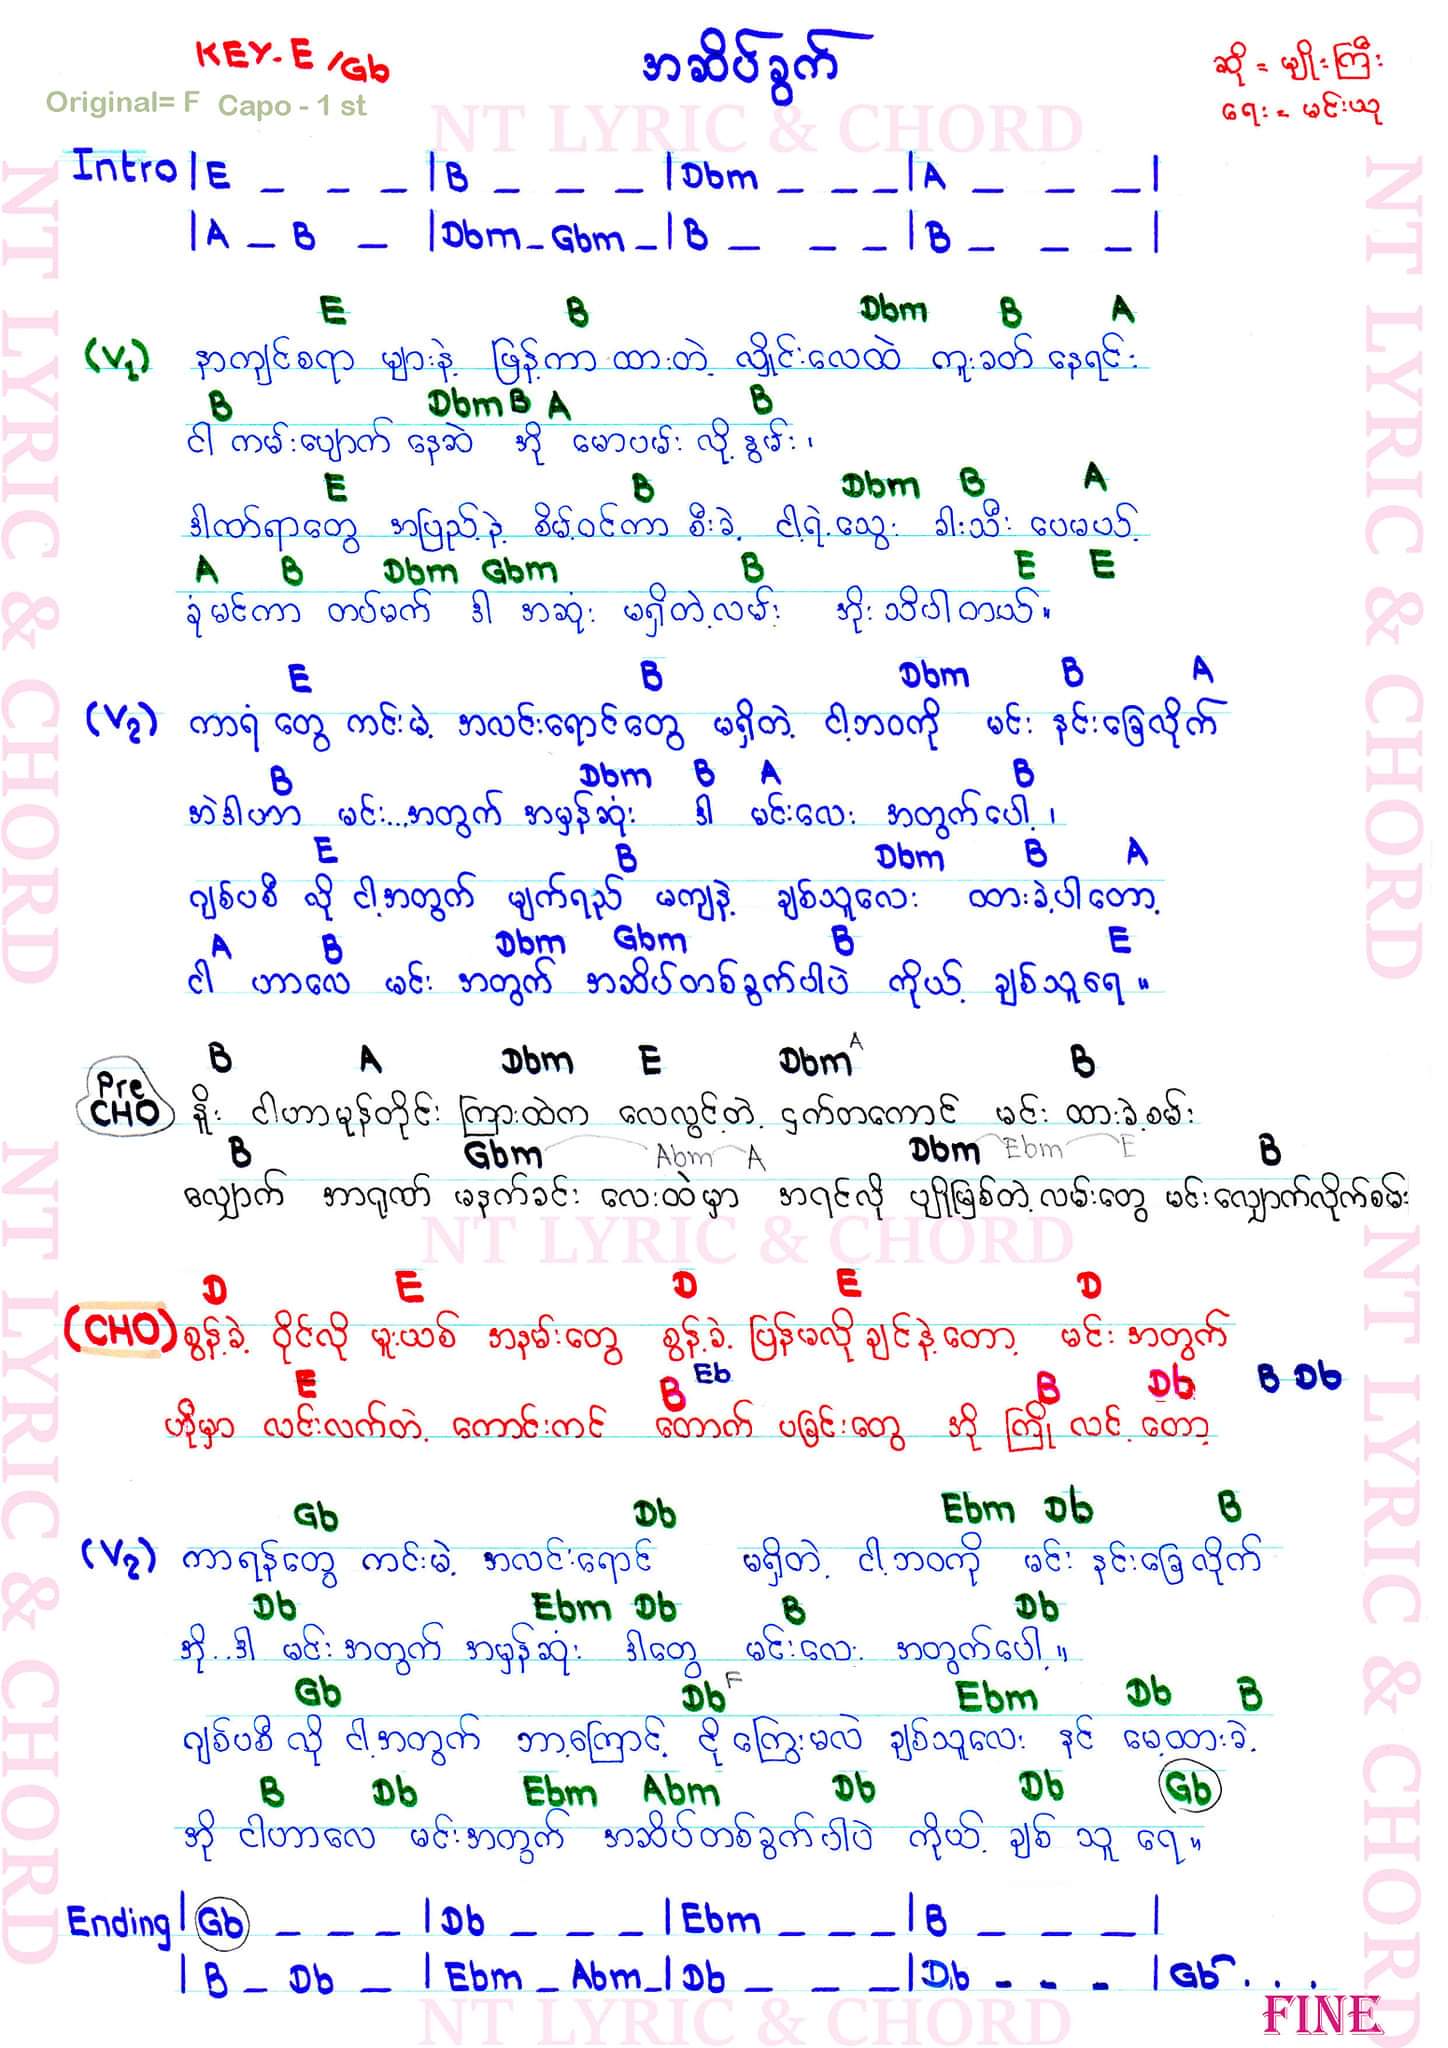 KEY-E/Gb
အဆိပ်ခွက်
ဆို = မျိုးကြီး
Original= F Capo - 1 st
ရေး = မင်းယု
NT LYRIC & CHORD
NT LYRIC & CHORD
NT LYRIC & CHORD
Intro |E _ _ _ |B _ _ _ |Dbm _ _ _ |A _ _ _ |
|A _ B _ |Dbm _ Gbm _ |B _ _ _ |B _ _ _ |
E B Dbm B A
(V1) နာကျင်စရာ များနဲ့ ဖြန့်ကာ ထားတဲ့ လှိုင်းလေထဲ ကူးခတ် နေရင်း
B Dbm B A B
ငါ ကမ်းပျောက် နေဆဲ အို မောပမ်း လို့ နွမ်း၊
E B Dbm B A
ဒါဏ်ရာတွေ အပြည့်နဲ့ စိမ့်ဝင်ကာ စီးခဲ့ ငါ့ရဲ့သွေး ခါးသီး ပေမယ့်
A B Dbm Gbm B E E
ခုံမင်ကာ တပ်မက် ဒါ အဆုံး မရှိတဲ့လမ်း အိုး သိပါတယ်။
E B Dbm B A
(V2) ကာရံ တွေ ကင်းမဲ့ အလင်းရောင်တွေ မရှိတဲ့ ငါ့ဘဝကို မင်း နင်းခြေလိုက်
B Dbm B A B
အဲဒါဟာ မင်း...အတွက် အမှန်ဆုံး ဒါ မင်းလေး အတွက်ပေါ့၊
E B Dbm B A
ဂျစ်ပစီ လို ငါ့အတွက် မျက်ရည် မကျနဲ့ ချစ်သူလေး ထားခဲ့ပါတော့
A B Dbm Gbm B E
ငါ ဟာလေ မင်း အတွက် အဆိပ်တစ်ခွက်ပါပဲ ကိုယ့် ချစ်သူရေ။
B A Dbm E Dbm A B
Pre CHO နိုး ငါဟာမုန်တိုင်း ကြားထဲက လေလွင့်တဲ့ ငှက်တကောင် မင်း ထားခဲ့စမ်း
B Gbm Abm A Dbm Ebm E B
လျှောက် အာရုဏ် မနက်ခင်း လေးထဲမှာ အရင်လို ပျိုမြစ်တဲ့လမ်းတွေ မင်းလျှောက်လိုက်စမ်း
NT LYRIC & CHORD
D E D E D
(CHO) စွန့်ခဲ့ ဝိုင်လို မူးယစ် အနမ်းတွေ စွန့်ခဲ့ ပြန်မလိုချင်နဲ့တော့ မင်း အတွက်
E B Eb B Db B Db
ဟိုမှာ လင်းလက်တဲ့ ကောင်းကင် တောက် ပခြင်းတွေ အို ကြို လင့် တော့
NT LYRIC & CHORD
NT LYRIC & CHORD
Gb Db Ebm Db B
(V2) ကာရန်တွေ ကင်းမဲ့ အလင်းရောင် မရှိတဲ့ ငါ့ဘဝကို မင်း နင်းခြေလိုက်
Db Ebm Db B Db
အို..ဒါ မင်းအတွက် အမှန်ဆုံး ဒါတွေ မင်းလေး အတွက်ပေါ့။
Gb Db F Ebm Db B
ဂျစ်ပစီ လို ငါ့အတွက် ဘာ့ကြောင့် ငို ကြွေးမလဲ ချစ်သူလေး နင် မေ့ထားခဲ့
B Db Ebm Abm Db Db Gb
အို ငါဟာလေ မင်းအတွက် အဆိပ်တစ်ခွက်ပါပဲ ကိုယ့် ချစ် သူ ရေ။
Ending |Gb _ _ _ |Db _ _ _ |Ebm _ _ _ |B _ _ _ |
|B _ Db _ |Ebm _ Abm _ |Db _ _ _ |Db - - - |Gb . . .
NT LYRIC & CHORD
FINE